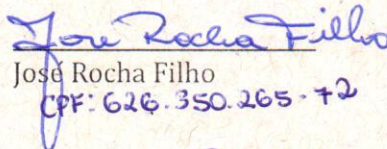 José Rocha Filho
José Rocha Filho
CPF: 626.350.265-72